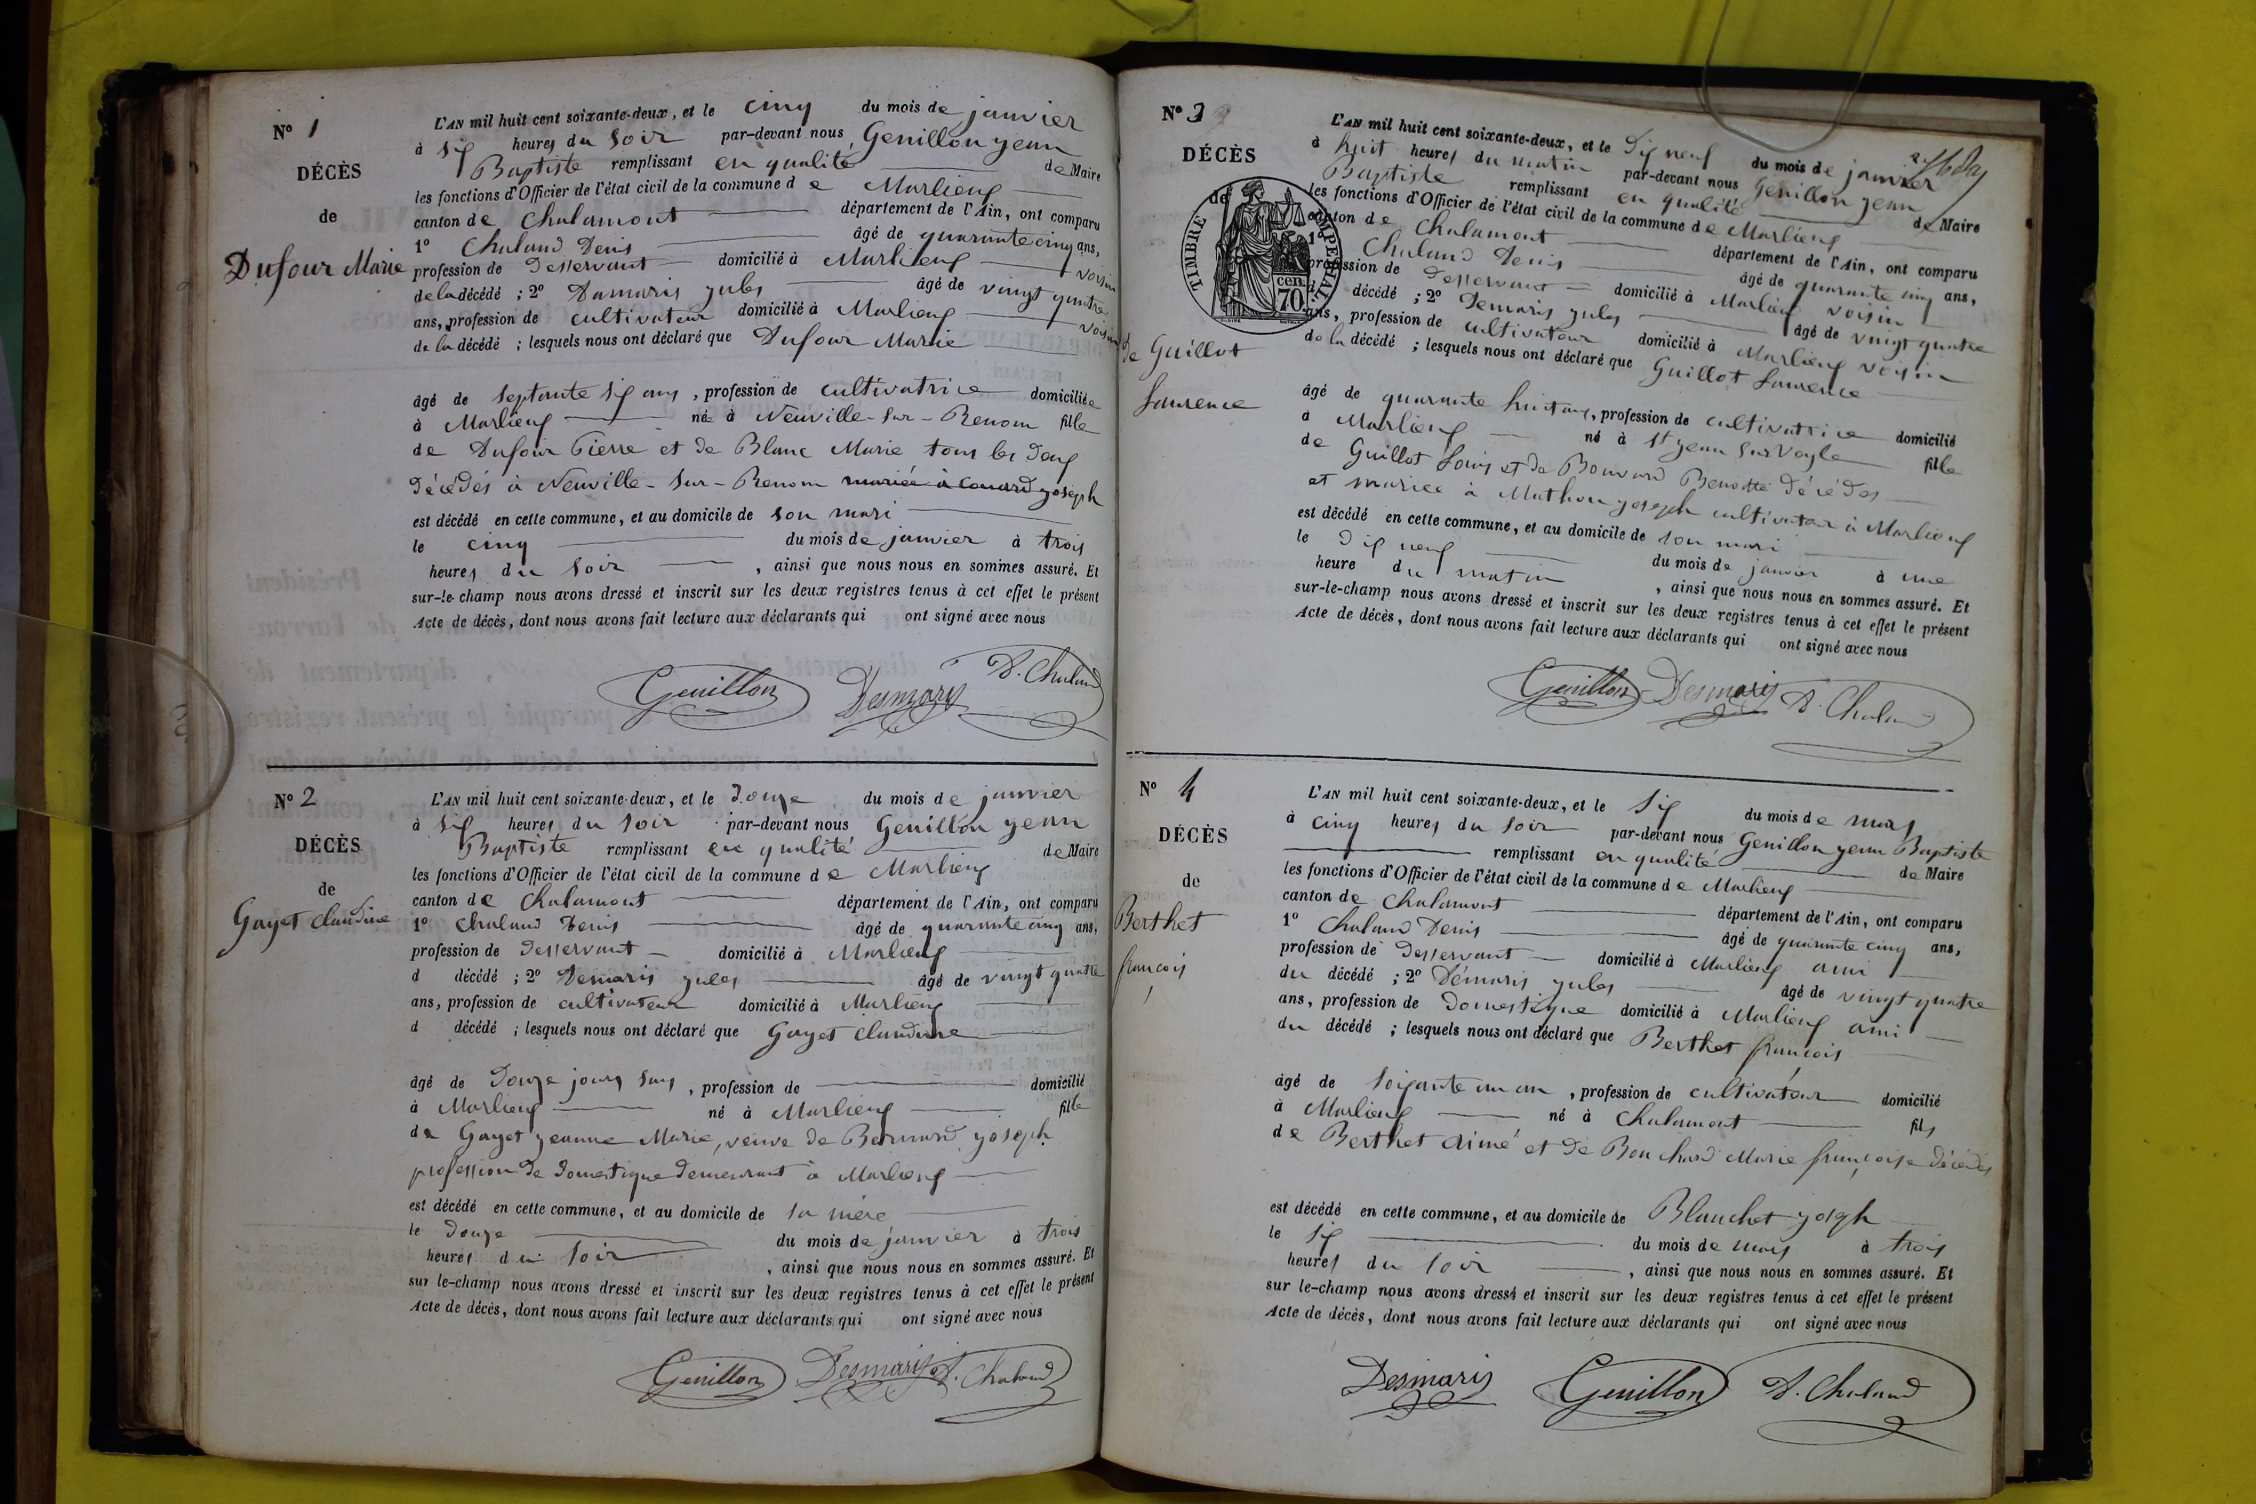 N° 1
DÉCÈS
de
Dufour Marie
L'AN mil huit cent soixante-deux, et le cinq du mois de janvier
à six heures du soir par-devant nous Genillon jean
Baptiste remplissant en qualité de Maire
les fonctions d'Officier de l'état civil de la commune de Marlieux
canton de Chalamont département de l'Ain, ont comparu
1° Chaland Denis âgé de quarante cinq ans,
profession de Desservant domicilié à Marlieux voisin
de la décédé ; 2° Damaris jules âgé de vingt quatre
ans, profession de cultivateur domicilié à Marlieux voisin
de la décédé ; lesquels nous ont déclaré que Dufour Marie
âgé de septante six ans, profession de cultivatrice domiciliée
à Marlieux né à Neuville-sur-Renom fille
de Dufour Pierre et de Blanc Marie tous les deux
décédés à Neuville-sur-Renom mariée à Couard joseph
est décédé en cette commune, et au domicile de son mari
le cinq du mois de janvier à trois
heures du soir, ainsi que nous nous en sommes assuré. Et
sur-le-champ nous avons dressé et inscrit sur les deux registres tenus à cet effet le présent
Acte de décès, dont nous avons fait lecture aux déclarants qui ont signé avec nous
Genillon Desmaris D. Chaland
N° 2
DÉCÈS
de
Gayet claudine
L'AN mil huit cent soixante-deux, et le douze du mois de janvier
à six heures du soir par-devant nous Genillon jean
Baptiste remplissant en qualité de Maire
les fonctions d'Officier de l'état civil de la commune de Marlieux
canton de Chalamont département de l'Ain, ont comparu
1° Chaland Denis âgé de quarante cinq ans,
profession de Desservant domicilié à Marlieux
d décédé ; 2° Demaris jules âgé de vingt quatre
ans, profession de cultivateur domicilié à Marlieux
d décédé ; lesquels nous ont déclaré que Gayet claudine
âgé de Douze jours, profession de domicilié
à Marlieux né à Marlieux fille
de Gayet jeanne Marie, veuve de Bernard joseph
profession de domestique demeurant à Marlieux
est décédé en cette commune, et au domicile de sa mère
le douze du mois de janvier à trois
heures du soir, ainsi que nous nous en sommes assuré. Et
sur le-champ nous avons dressé et inscrit sur les deux registres tenus à cet effet le présent
Acte de décès, dont nous avons fait lecture aux déclarants qui ont signé avec nous
Genillon Desmaris D. Chaland
N° 3
DÉCÈS
de
TIMBRE IMPERIAL
70 cen.
de Guillot
Laurence
L'AN mil huit cent soixante-deux, et le Dix neuf du mois de janvier
à huit heures du matin par-devant nous Genillon jean
Baptiste remplissant en qualité de Maire
les fonctions d'Officier de l'état civil de la commune de Marlieux
canton de Chalamont département de l'Ain, ont comparu
1° Chaland Denis âgé de quarante cinq ans,
profession de Desservant domicilié à Marlieux voisin
d décédé ; 2° Demaris jules âgé de vingt quatre
ans, profession de cultivateur domicilié à Marlieux voisin
de la décédé ; lesquels nous ont déclaré que Guillot Laurence
âgé de quarante huit ans, profession de cultivatrice domicilié
à Marlieux né à st jean sur Veyle fille
de Guillot Louis et de Bouvard Benoitte décédés
et mariée à Mathon joseph cultivateur à Marlieux
est décédé en cette commune, et au domicile de son mari
le dix neuf du mois de janvier à une
heure du matin, ainsi que nous nous en sommes assuré. Et
sur-le-champ nous avons dressé et inscrit sur les deux registres tenus à cet effet le présent
Acte de décès, dont nous avons fait lecture aux déclarants qui ont signé avec nous
Genillon Desmaris D. Chaland
N° 4
DÉCÈS
de
Berthet
françois
L'AN mil huit cent soixante-deux, et le six du mois de mars
à cinq heures du soir par-devant nous Genillon jean Baptiste
remplissant en qualité de Maire
les fonctions d'Officier de l'état civil de la commune de Marlieux
canton de Chalamont département de l'Ain, ont comparu
1° Chaland Denis âgé de quarante cinq ans,
profession de Desservant domicilié à Marlieux ami
du décédé ; 2° Démaris jules âgé de vingt quatre
ans, profession de Domestique domicilié à Marlieux ami
du décédé ; lesquels nous ont déclaré que Berthet françois
âgé de soixante un an, profession de cultivateur domicilié
à Marlieux né à Chalamont fils
de Berthet Aimé et de Bouchard Marie françoise décédés
est décédé en cette commune, et au domicile de Blanchet joseph
le six du mois de mars à trois
heures du soir, ainsi que nous nous en sommes assuré. Et
sur le-champ nous avons dressé et inscrit sur les deux registres tenus à cet effet le présent
Acte de décès, dont nous avons fait lecture aux déclarants qui ont signé avec nous
Desmaris Genillon D. Chaland